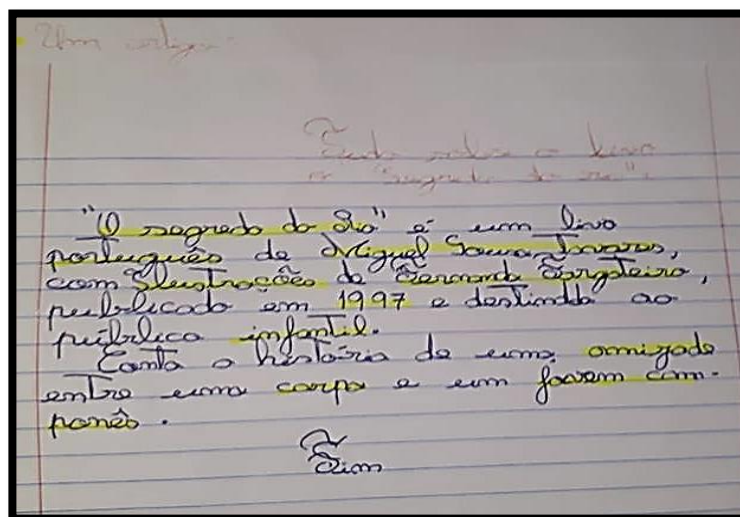 Um artigo:
sobre o livro
o "segredo do rio".
"O segredo do Rio" é um livro
português de Miguel Sousa Tavares,
com Ilustrações de Fernanda Fargateiro,
publicado em 1997 e ao
público infantil.
Conta a história de uma amizade
entre uma carpa e um jovem cam-
ponês.
Fim